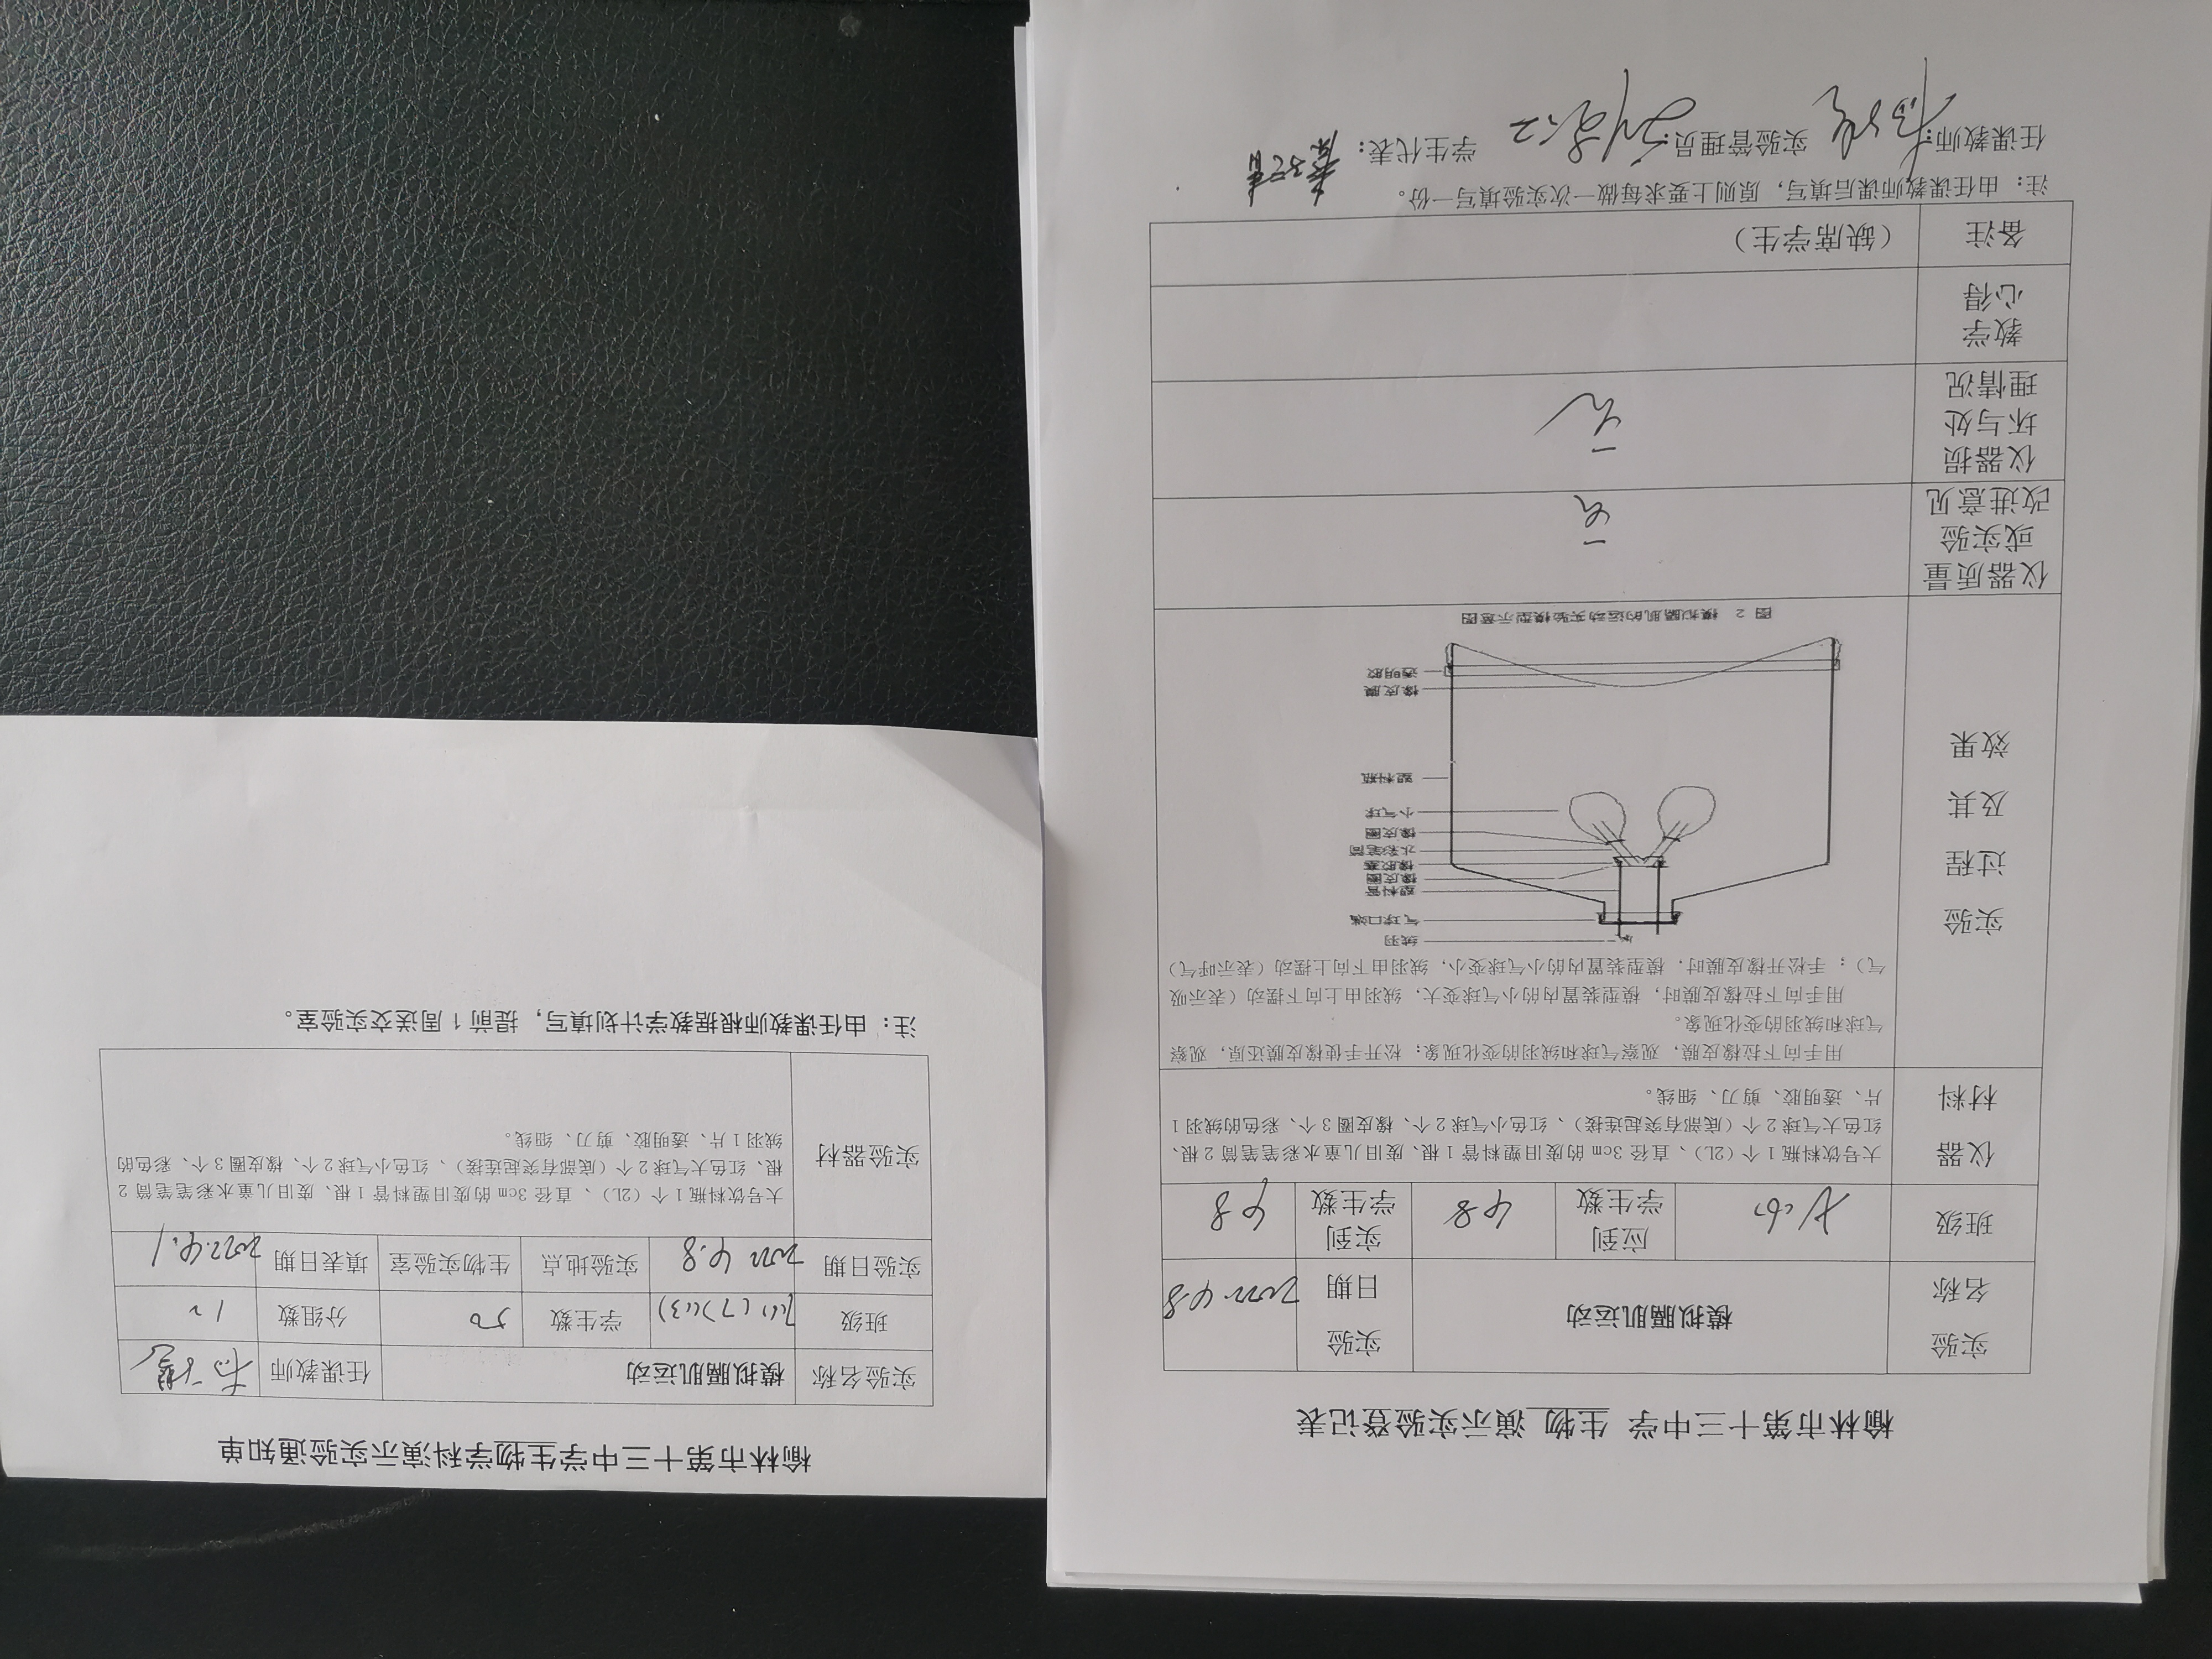 榆林市第十三中学 生物 演示实验登记表
实验名称 模拟膈肌运动 实验日期 2022.4.8
班级 应到学生数 48 实到学生数 48
仪器材料 大号饮料瓶 1 个（2L）、直径 3cm 的废旧塑料管 1 根、废旧儿童水彩笔笔筒 2 根、
红色大气球 2 个（底部有突起连接）、红色小气球 2 个、橡皮圈 3 个、彩色的绒羽 1
片、透明胶、剪刀、细线。
实验过程及其效果
用手向下拉橡皮膜，观察气球和绒羽的变化现象；松开手使橡皮膜还原，观察
气球和绒羽的变化现象。
用手向下拉橡皮膜时，模型装置内的小气球变大，绒羽由上向下摆动（表示吸
气）；手松开橡皮膜时，模型装置内的小气球变小，绒羽由下向上摆动（表示呼气）
绒羽
气球口端
塑料管
橡皮圈
橡胶塞
水彩笔筒
橡皮圈
小气球
塑料瓶
橡皮膜
透明胶
图 2 模拟膈肌的运动实验模型示意图
仪器质量或实验改进意见
仪器损坏与处理情况
教学心得
备注 （缺席学生）
注：由任课教师课后填写，原则上要求每做一次实验填写一份。
任课教师： 实验管理员： 学生代表：
榆林市第十三中学生物学科演示实验通知单
实验名称 模拟膈肌运动 任课教师
班级 学生数 50 分组数 12
实验日期 2022 4.8 实验地点 生物实验室 填表日期 2022.4.1
实验器材 大号饮料瓶 1 个（2L）、直径 3cm 的废旧塑料管 1 根、废旧儿童水彩笔笔筒 2
根、红色大气球 2 个（底部有突起连接）、红色小气球 2 个、橡皮圈 3 个、彩色的
绒羽 1 片、透明胶、剪刀、细线。
注：由任课教师根据教学计划填写，提前 1 周送交实验室。